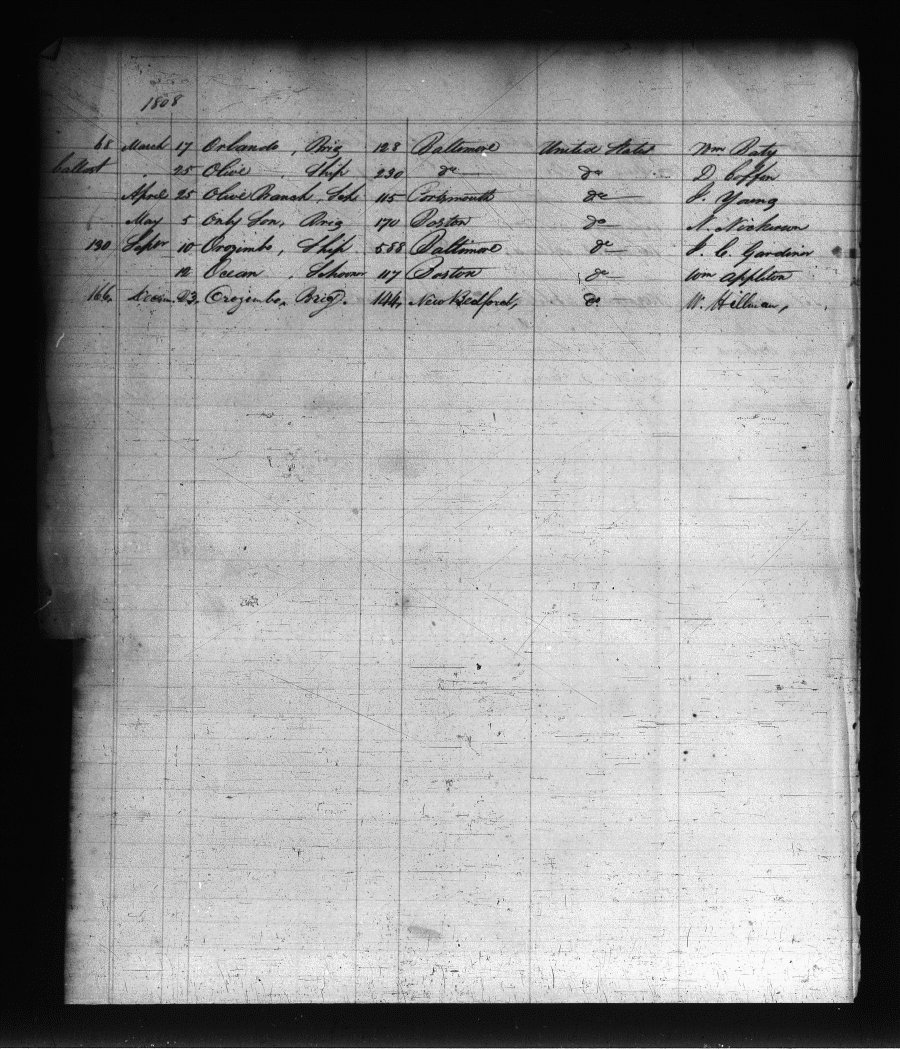 1808
68 March 17 Orlando, Brig 128 Baltimore United States Wm Baty
ballast . 25 Olive . Ship 230 do do D Coffin
April 25 Olive Branch, Sch 115 Portsmouth do J. Young
May 5 Only Son, Brig 170 Boston do N. Nickerson
130 Septr 10 Orozimbo, Ship 588 Baltimore do J. C. Gardiner
12 Ocean . Schooner 117 Boston do Wm Appleton
166, Decem. 23, Orozembo, Brig. 144, New Bedford, do W. Hillman,